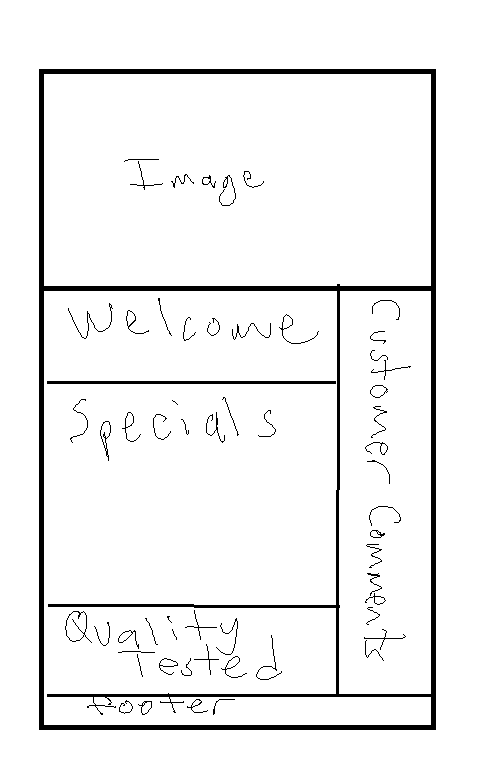 Image
Welcome
Specials
Quality
Tested
Customer Comments
footer